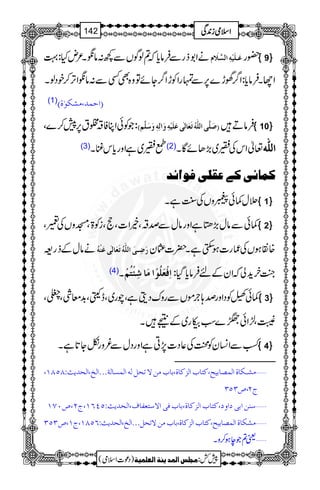 اسلامی زندگی
142
{9} حضور عَلَیْہِ السَّلَام نے ابوذر سے فرمایا کہ تم لوگوں سے کچھ نہ مانگو۔ عرض کیا: بہت
اچھا۔ فرمایا: اگر گھوڑے پر سے تمہارا کوڑا گر جائے تو وہ بھی کسی سے نہ مانگو اتر کر خود لو۔
(احمد، مشکوٰۃ)(1)
{10} فرماتے ہیں (صَلَّی اللّٰہُ تَعَالٰی عَلَیْہِ وَاٰلِہٖ وَسَلَّم): جو کوئی اپنا فاقہ مخلوق پر پیش کرے،
اللّٰہ تعالٰی اس کی فقیری بڑھائے گا۔(2) طمع فقیری ہے اور یاس غنا۔(3)
کمائی کے عقلی فوائد
{1} حلال کمائی پیغمبروں کی سنت ہے۔
{2} کمائی سے مال بڑھتا ہے اور مال سے صدقہ، خیرات، حج، زکوٰۃ، مسجدوں کی تعمیر،
خانقاہوں کی عمارت ہوسکتی ہے۔ حضرت عثمان رَضِیَ اللّٰہُ تَعَالٰی عَنْہُ نے مال کے ذریعہ
جنت خرید لی کہ ان کے لئے فرمایا گیا: اِفْعَلُوْا مَا شِئْتُمْ۔(4)
{3} کمائی کھیل کود اور صدہا جرموں سے روک دیتی ہے، چوری، ڈکیتی، بدمعاشی، چغلی،
غیبت، لڑائی جھگڑے سب بیکاری کے نتیجے ہیں۔
{4} کسب سے انسان کو محنت کی عادت پڑتی ہے اور دل سے غرور نکل جاتا ہے۔
مشکاۃ المصابیح، کتاب الزکاۃ، باب من لا تحل لہ المسالۃ...الخ، الحدیث: ۱۸۵۸،
ج۲، ص۳۵۳
سنن ابی داود، کتاب الزکاۃ، باب فی الاستعفاف، الحدیث: ۱۶۴۵، ج۲، ص ۱۷۰
مشکاۃ المصابیح، کتاب الزکاۃ، باب من لا تحل...الخ، الحدیث: ۱۸۵۶، ج۱، ص۳۵۳
یعنی تم جو چاہو کرو۔
پیش کش: مجلس المدینۃ العلمیۃ (دعوتِ اسلامی)